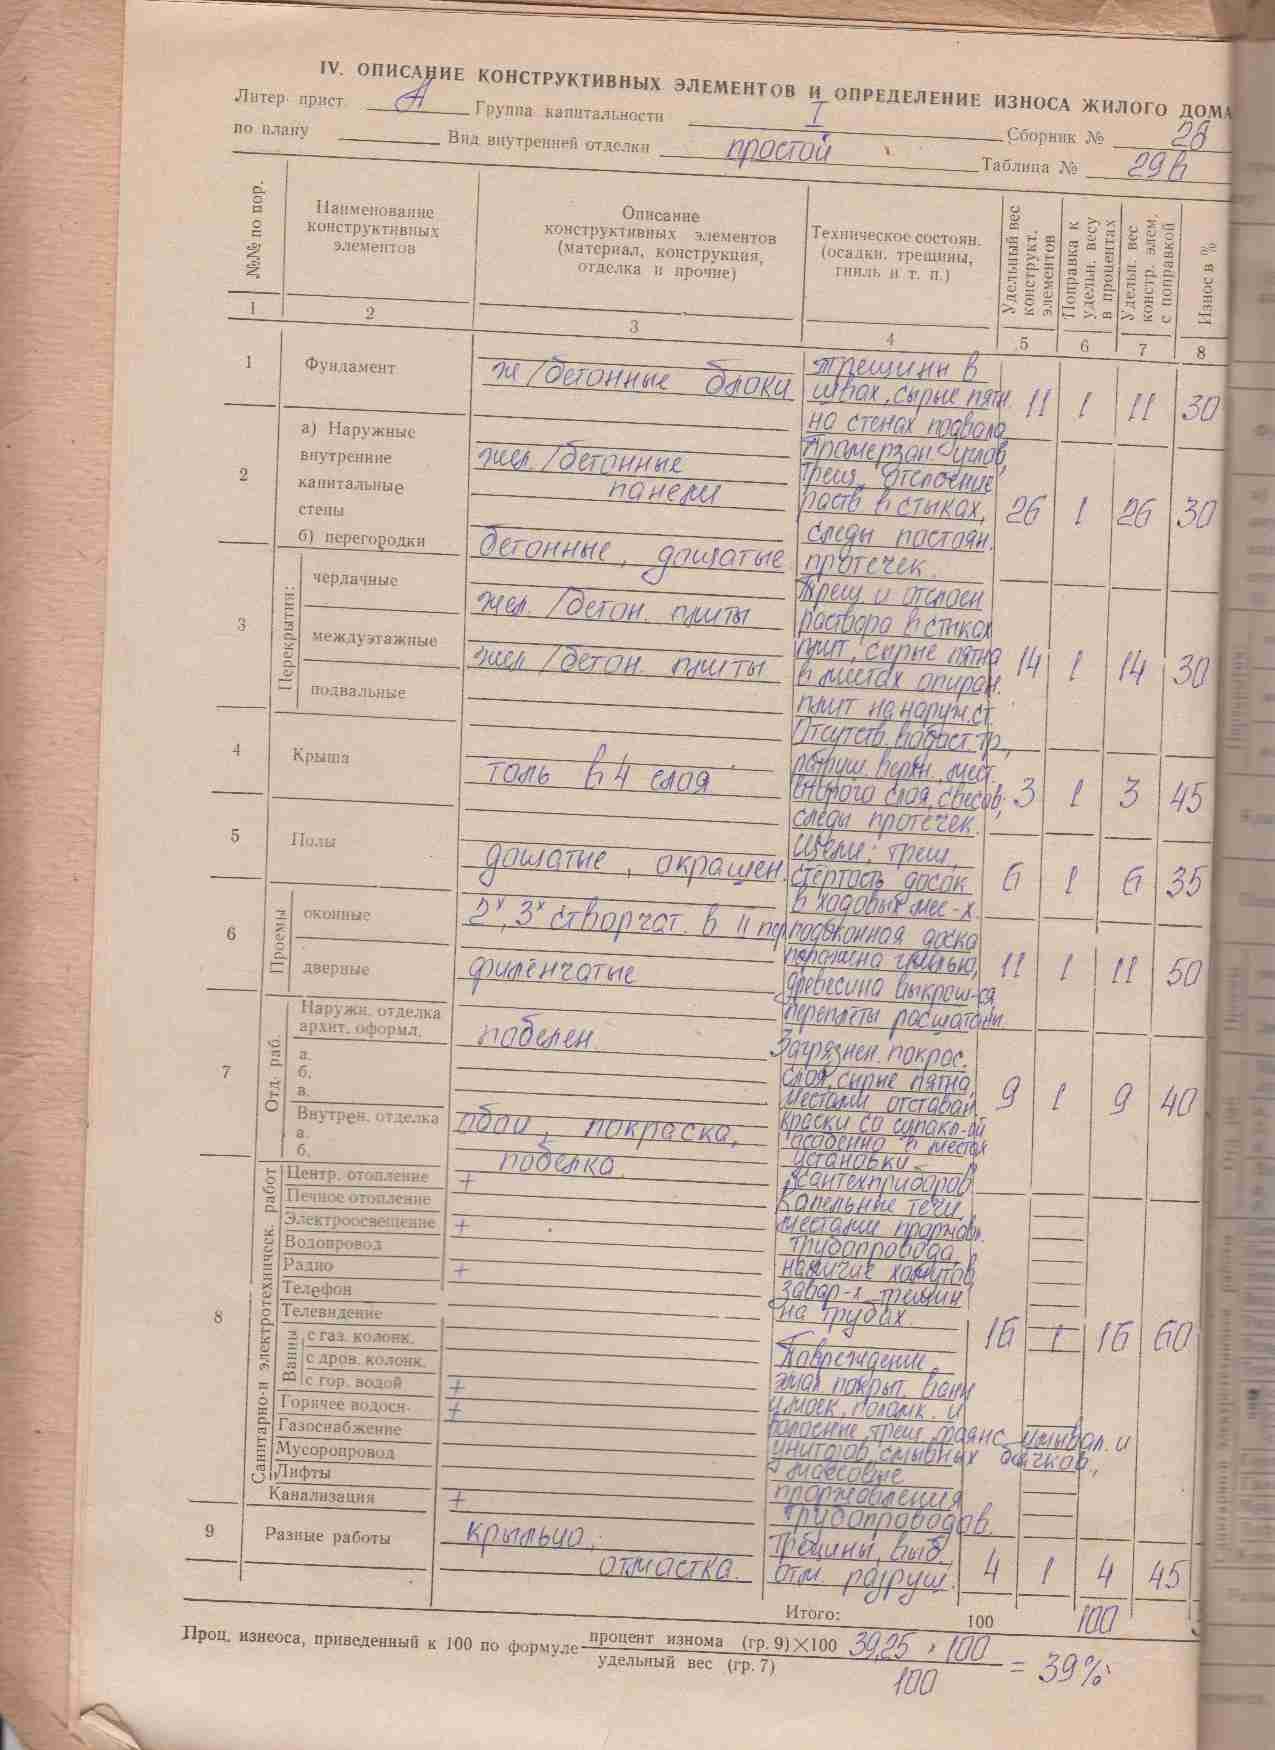 IV. ОПИСАНИЕ КОНСТРУКТИВНЫХ ЭЛЕМЕНТОВ И ОПРЕДЕЛЕНИЕ ИЗНОСА ЖИЛОГО ДОМА
Литер прист. А Группа капитальности I Сборник № 28
по плану Вид внутренней отделки простой Таблица № 29в
№№ по пор.
Наименование
конструктивных
элементов
Описание
конструктивных элементов
(материал, конструкция,
отделка и прочие)
Техническое состоян.
(осадки, трещины,
гниль и т. п.)
Удельный вес
конструкт.
элементов
Поправка к
удельн. весу
в процентах
Удельн. вес
констр. элем.
с поправкой
Износ в %
1 2 3 4 5 6 7 8
1 Фундамент
ж/бетонные блоки
трещины в
швах, сырые пятн.
на стенах подвала
11 1 11 30
2
а) Наружные
внутренние
капитальные
стены
б) перегородки
жел./бетонные
панели
бетонные, дощатые
Промерзан. углов,
трещ. отслоение
раств. в стыках,
следы постоян.
протечек.
26 1 26 30
3
Перекрытия:
чердачные
междуэтажные
подвальные
жел./бетон. плиты
жел/бетон. плиты
Трещ. и отслоен
раствора в стыках
плит, сырые пятна
в местах опиран.
плит на наруж. ст.
14 1 14 30
4 Крыша
толь в 4 слоя
Отсутств. водост. тр.,
разруш. верхн. мест.
второго слоя, свесов,
следы протечек.
3 1 3 45
5 Полы
дощатые, окрашен.
Щели, трещ.,
стёртость досок
в ходовых мес-х.
6 1 6 35
6
Проемы
оконные
дверные
2х, 3х створчат. в II пер
филенчатые
подоконная доска
поражена гнилью,
древесина выкрош-ся,
переплёты расшатаны
11 1 11 50
7
Отд. раб.
Наружн. отделка
архит. оформл.
а.
б.
в.
Внутрен. отделка
а.
б.
побелен.
обои, покраска,
побелка.
Загрязнен. покрас.
слоя, сырые пятна,
местами отставан.
краски со
особенно в местах
установки
сантехприборов
9 1 9 40
8
Санитарно-и электротехническ. работ
Центр. отопление +
Печное отопление
Электроосвещение +
Водопровод
Радио +
Телефон
Телевидение
Ванны
с газ. колонк.
с дров. колонк.
с гор. водой +
Горячее водосн- +
Газоснабжение
Мусоропровод
Лифты
Канализация +
Капельные течи,
местами проржав.
трубопровода,
наличие хомутов,
завар-х трещин
на трубах.
Повреждение
эмал. покрыт. ванн
и моек, поломк. и
трещ. фаянс. умывал. и
унитазов, смывных бачков,
массовые
проржавления
трубопроводов.
16 1 16 60
9 Разные работы
крыльцо,
отмостка.
Трещины, выб.
отм. разруш.
4 1 4 45
Итого: 100 100
Проц. изнеоса, приведенный к 100 по формуле процент изнома (гр. 9)×100 39,25 × 100
удельный вес (гр. 7) 100 = 39%